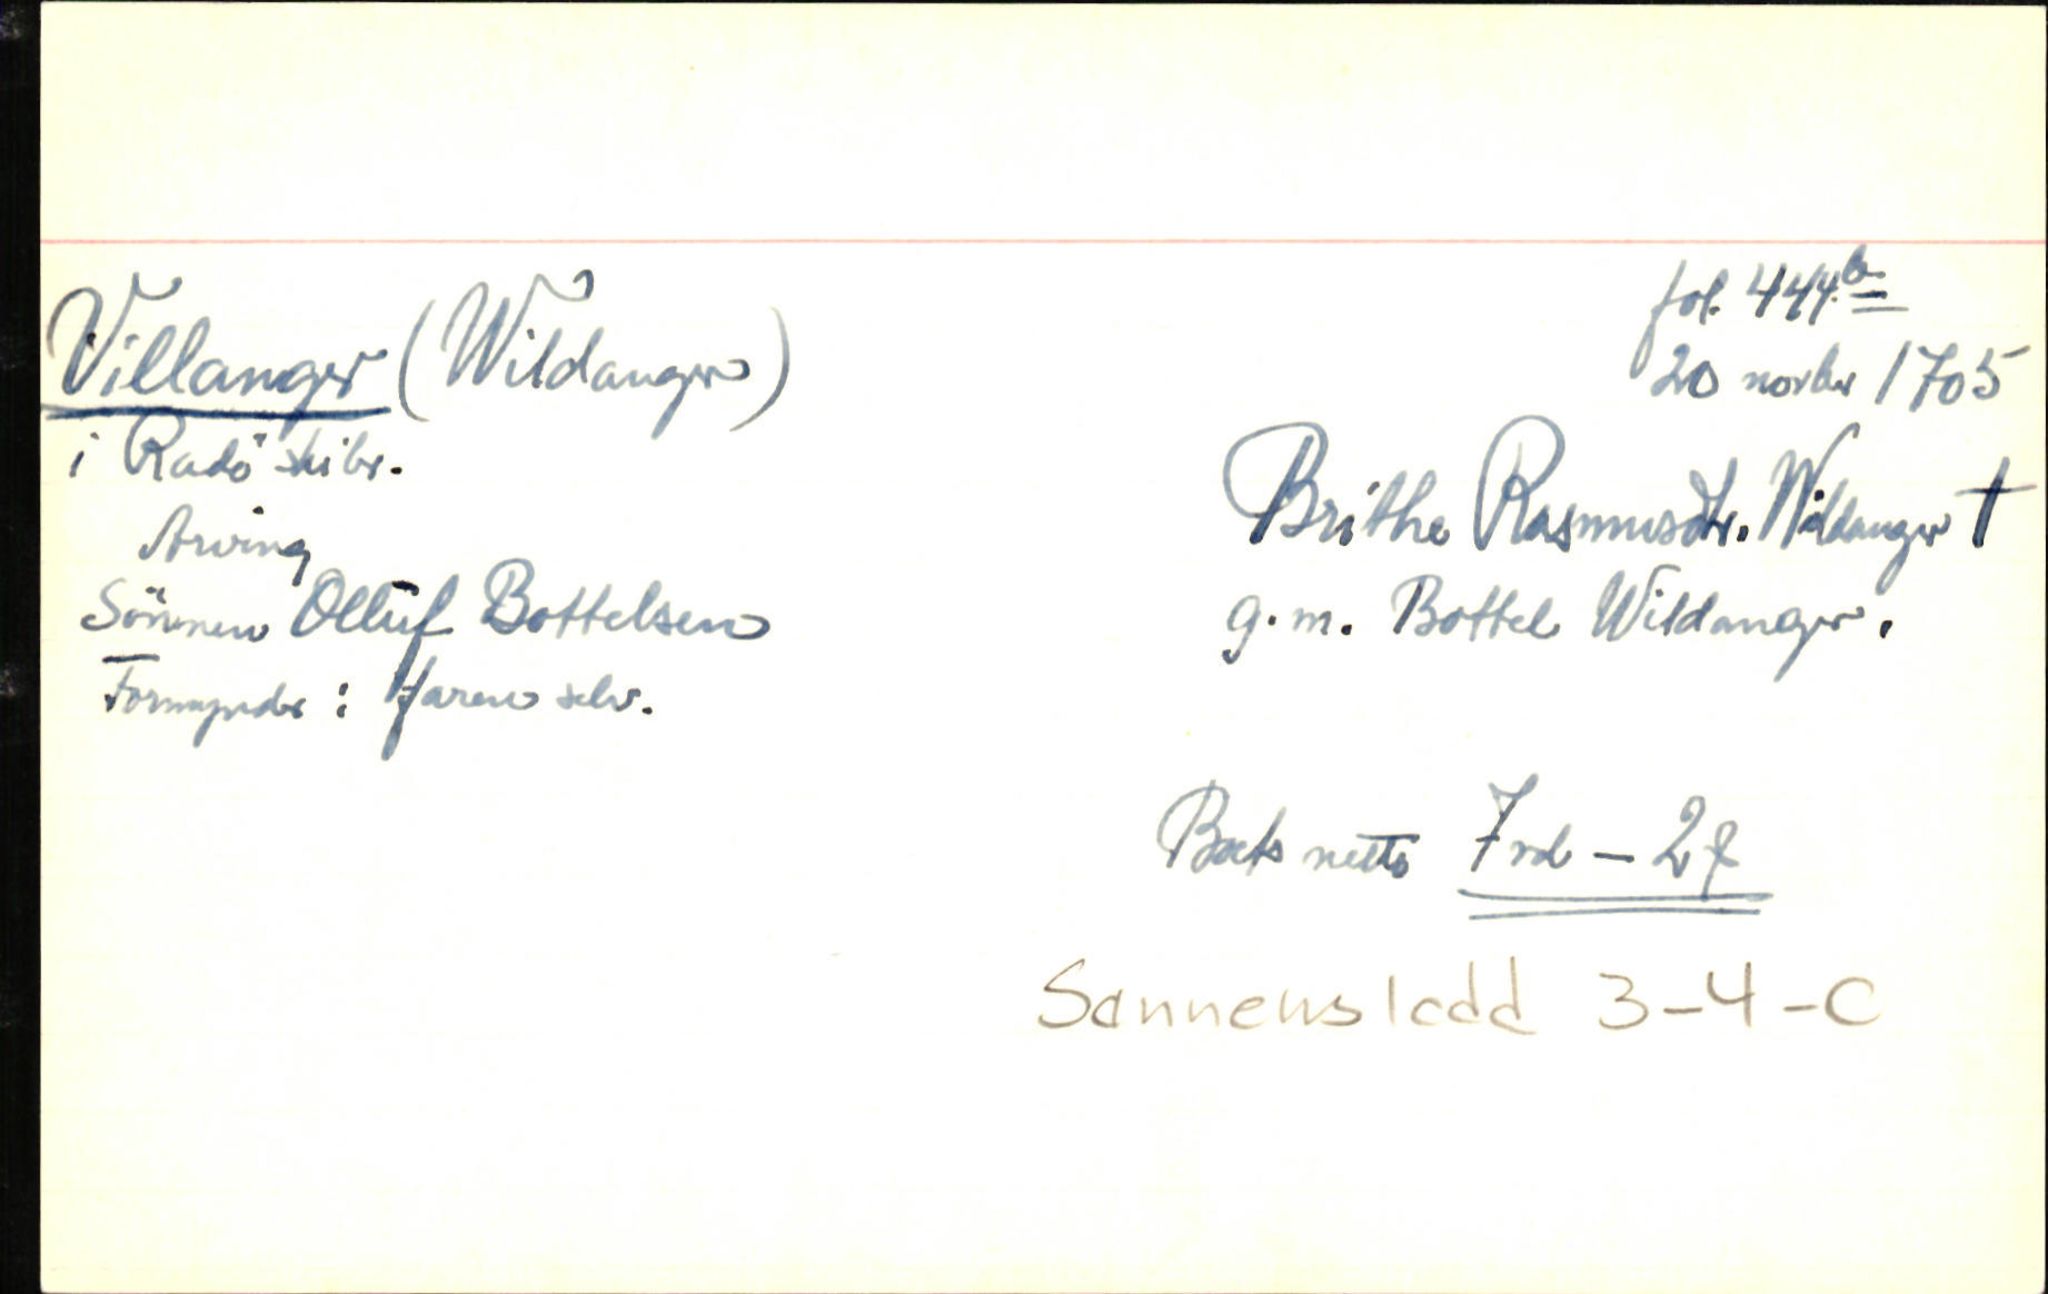 Villanger (Wildanger)
i Radö skibr.
Arving
Sönnen Olluf Bottelsen
Formynder: Faren selv.
fol. 444b
20 novbr 1705
Brithe Rasmusdtr. Wildanger †
g.m. Bottel Wildanger.
Boets netto 7 rd – 2
Sonnensladd 3-4-C